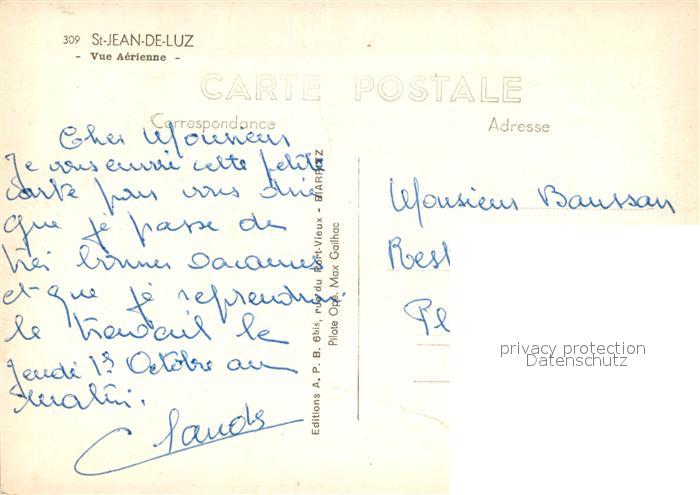 309 St-JEAN-DE-LUZ
- Vue Aérienne -
CARTE POSTALE
Correspondance
Adresse
Cher Monsieur
Je vous envoie cette petite
carte pour vous dire
que je passe de
très bonnes vacances
et que je reprendrai
le travail le
jeudi 1er Octobre au
matin.
Claude
Editions A. P. B. 6bis, rue du Port-Vieux - BIARRITZ
Pilote Opé. Max Gailhac
Monsieur Baussan
Rest
Pl
privacy protection
Datenschutz